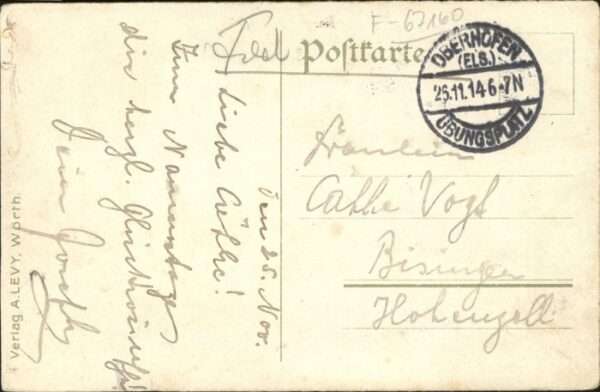 F-62160
Feld Postkarte
OBERHOFEN
(ELS.)
26.11.14 6-7N
ÜBUNGSPLATZ
Den 25. Nov.
Liebe Cäthe!
Zum Namenstage
die herzl. Glückwünsche!
Dein Joseph
Fräulein
Cäthe Vogt
Bisingen
Hohenzoll.
Verlag A. LEVY, Wörth